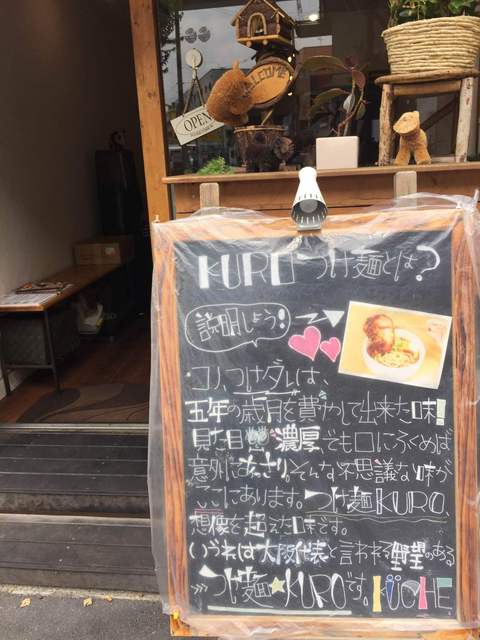 WELCOME
OPEN
KUROつけ麺とは?
説明しよう!
コノ、つけダレは、
五年の歳月を費やして出来た味!
見た目 濃厚、でも口にふくめば
意外にあっさり。そんな不思議な味が
ここにあります。つけ麺KURO、
想像を超えた味です。
いづれは大阪代表と言われる野望のある
つけ麺★KUROです。KÜCHE